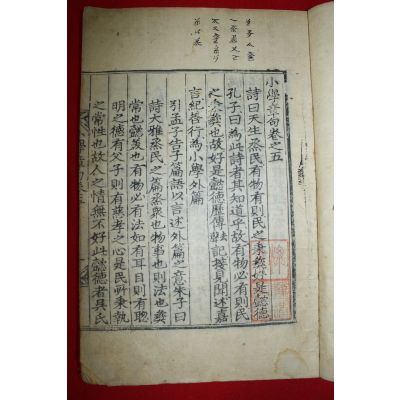 小學章句卷之五
詩曰天生烝民有物有則民之秉彝好是懿德
孔子曰為此詩者其知道乎故有物必有則民
之秉彝也故好是懿德歷傳記接見聞述嘉
言紀善行為小學外篇
引孟子告子篇語以言述外篇之意朱子曰
詩大雅烝民之篇烝衆也物事也則法也彝
常也懿美也有物必有法如有耳目則有聦
明之德有父子則有慈孝之心是民所秉執
之常性也故人之情無不好此懿德者吳氏